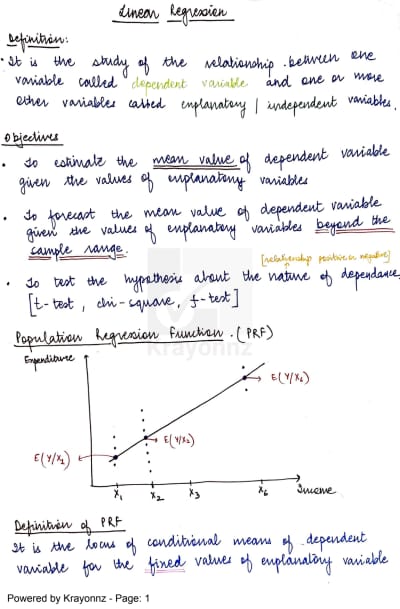 Linear Regression
Definition:
• It is the study of the relationship between one
variable called dependent variable and one or more
other variables called explanatory / independent variables.
Objectives
• To estimate the mean value of dependent variable
given the values of explanatory variables
• To forecast the mean value of dependent variable
given the values of explanatory variables beyond the
sample range.
[relationship positive or negative]
• To test the hypothesis about the nature of dependance
[t-test, chi-square, f-test]
Population Regression Function. (PRF)
Krayonnz
Expenditure
E(Y/X6)
E(Y/X2)
E(Y/X1)
X1 X2 X3 X6 Income
Definition of PRF
It is the locus of conditional means of dependent
variable for the fixed values of explanatory variable
Powered by Krayonnz - Page: 1